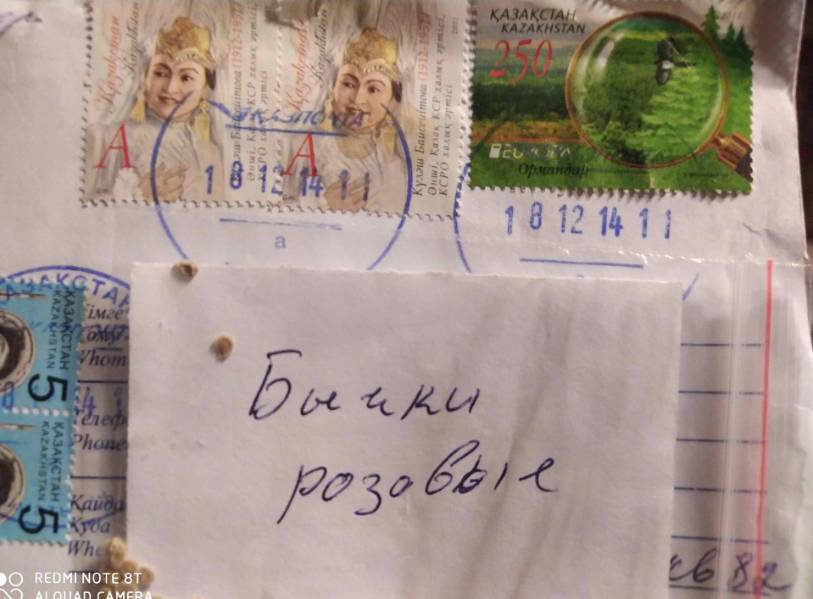 Қазақстан
Kazakhstan
A
Күләш Байсейітова (1912-1957)
Әнші, Қазақ КСР халық әртісі
КСРО халық әртісі
Қазақстан
Kazakhstan
A
Күләш Байсейітова (1912-1957)
Әнші, Қазақ КСР халық әртісі
КСРО халық әртісі
2012
ҚАЗАҚСТАН
KAZAKHSTAN
250
2011
EUROPA
Ормандар
ҚАЗПОЧТА
18 12 14 11
a
18 12 14 11
ҚАЗАҚСТАН
ҚАЗАҚСТАН
KAZAKHSTAN
5
ҚАЗАҚСТАН
KAZAKHSTAN
5
Whom
Phone
Қайда
Куда
Бычки
розовые
кв 82
REDMI NOTE 8T
AI QUAD CAMERA